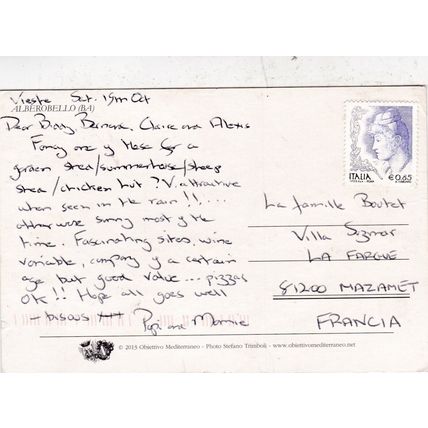 Vieste Sat. 15th Oct
ALBEROBELLO (BA)
Dear Bernard, Claire and Alexis
Fancy one of these for a
green shed/summerhouse/sheep
shed/chicken hut? V. attractive
when seen in the rain!!...
otherwise sunny most of the
time. Fascinating sites, wine
variable, company of a certain
age but good value... pizzas
OK!! Hope all goes well
bisous
Papi and Mamie
ITALIA
€0,65
La famille Boutet
Villa
LA FARGUE
81200 MAZAMET
FRANCIA
© 2013 Obiettivo Mediterraneo - Photo Stefano Trimboli - www.obiettivomediterraneo.net